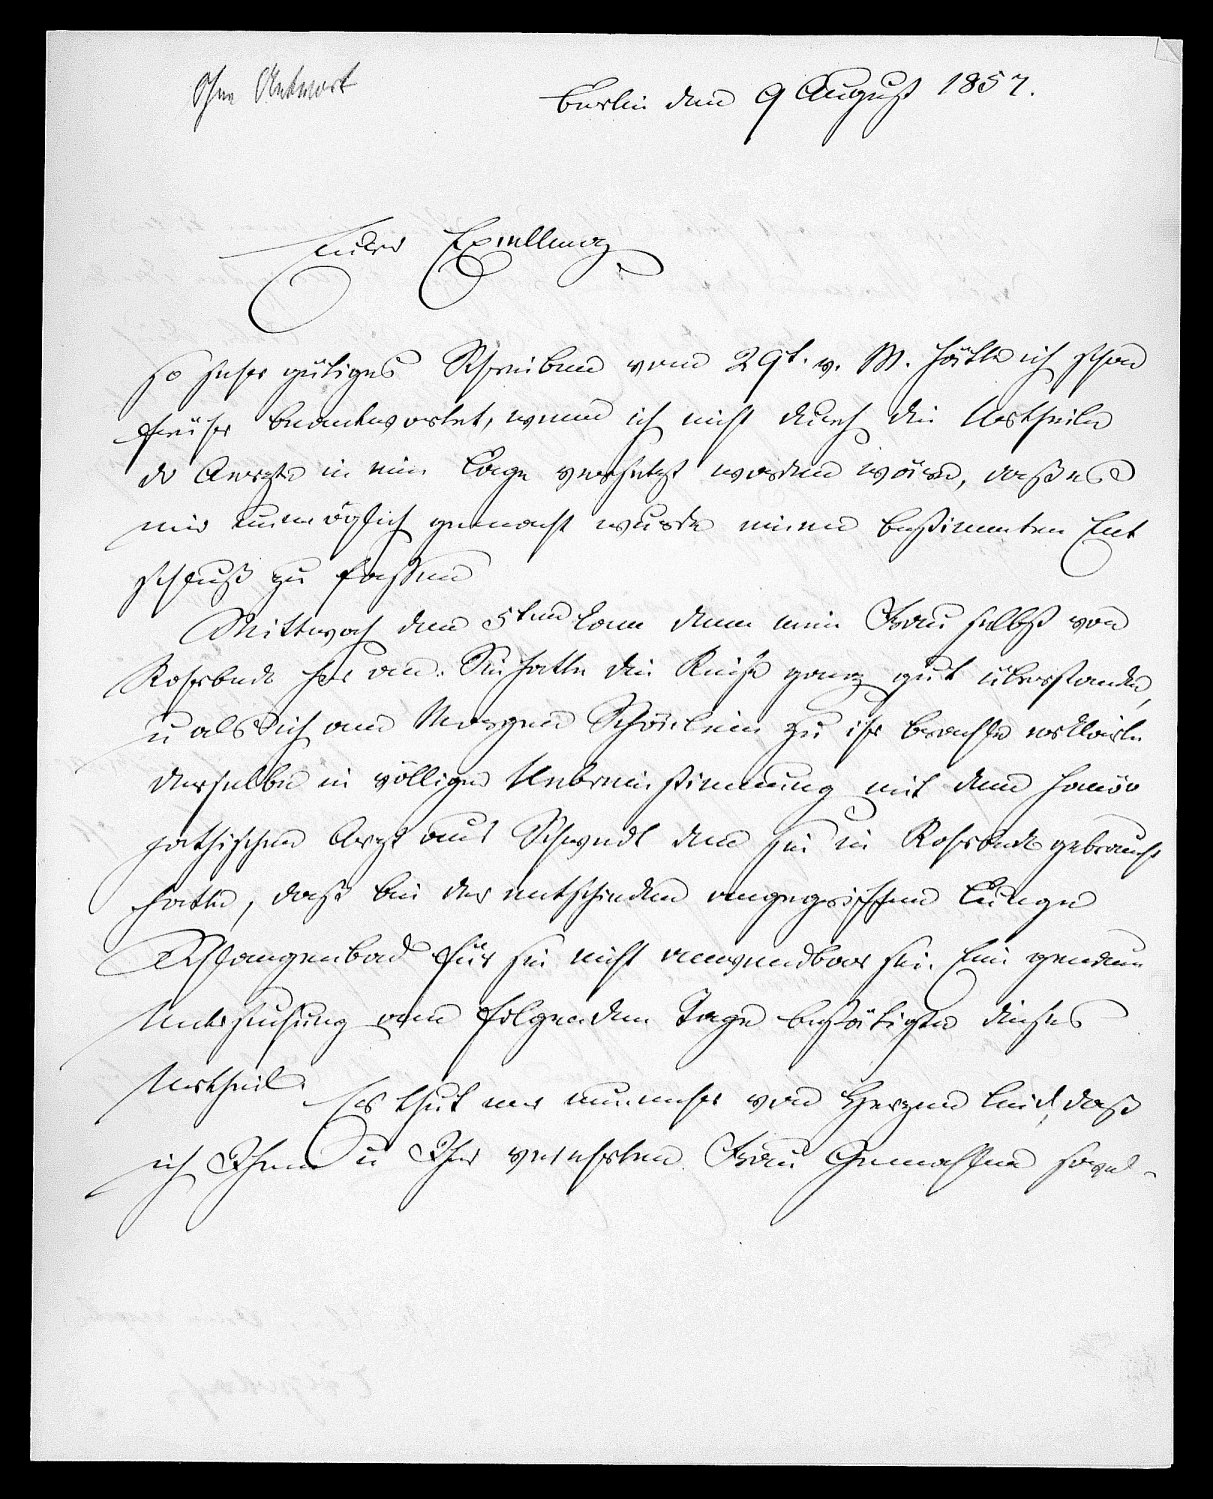 Ohne Antwort
Berlin den 9 August 1857.
Eurer Excellenz
so sehr gütiges Schreiben vom 29t. v. M. hätte ich schon
früher beantwortet, wenn ich nicht durch die Urtheile
der Aerzte in eine Lage versetzt worden wäre, daß es
mir unmöglich gemacht wurde einen bestimmten Ent
schluß zu fassen
Mittwoch den 5ten kam denn meine Frau selbst von
Rohrbeck her an. Sie hatte die Reise ganz gut überstanden,
u als ich am Morgen Schönlein zu ihr brachte erklärte
derselbe in völliger Uebereinstimmung mit dem homöo
pathischen Arzt aus Schwedt den sie in Rohrbeck gebraucht
hatte, daß bei der entschieden angegriffenen Lunge
Schlangenbad für sie nicht anwendbar sei. Eine genaue
Untersuchung am folgenden Tage bestätigte dieses
Urtheil.
Es thut mir nunmehr von Herzen leid, daß
ich Ihnen u Ihrer verehrten Frau Gemahlin soviel